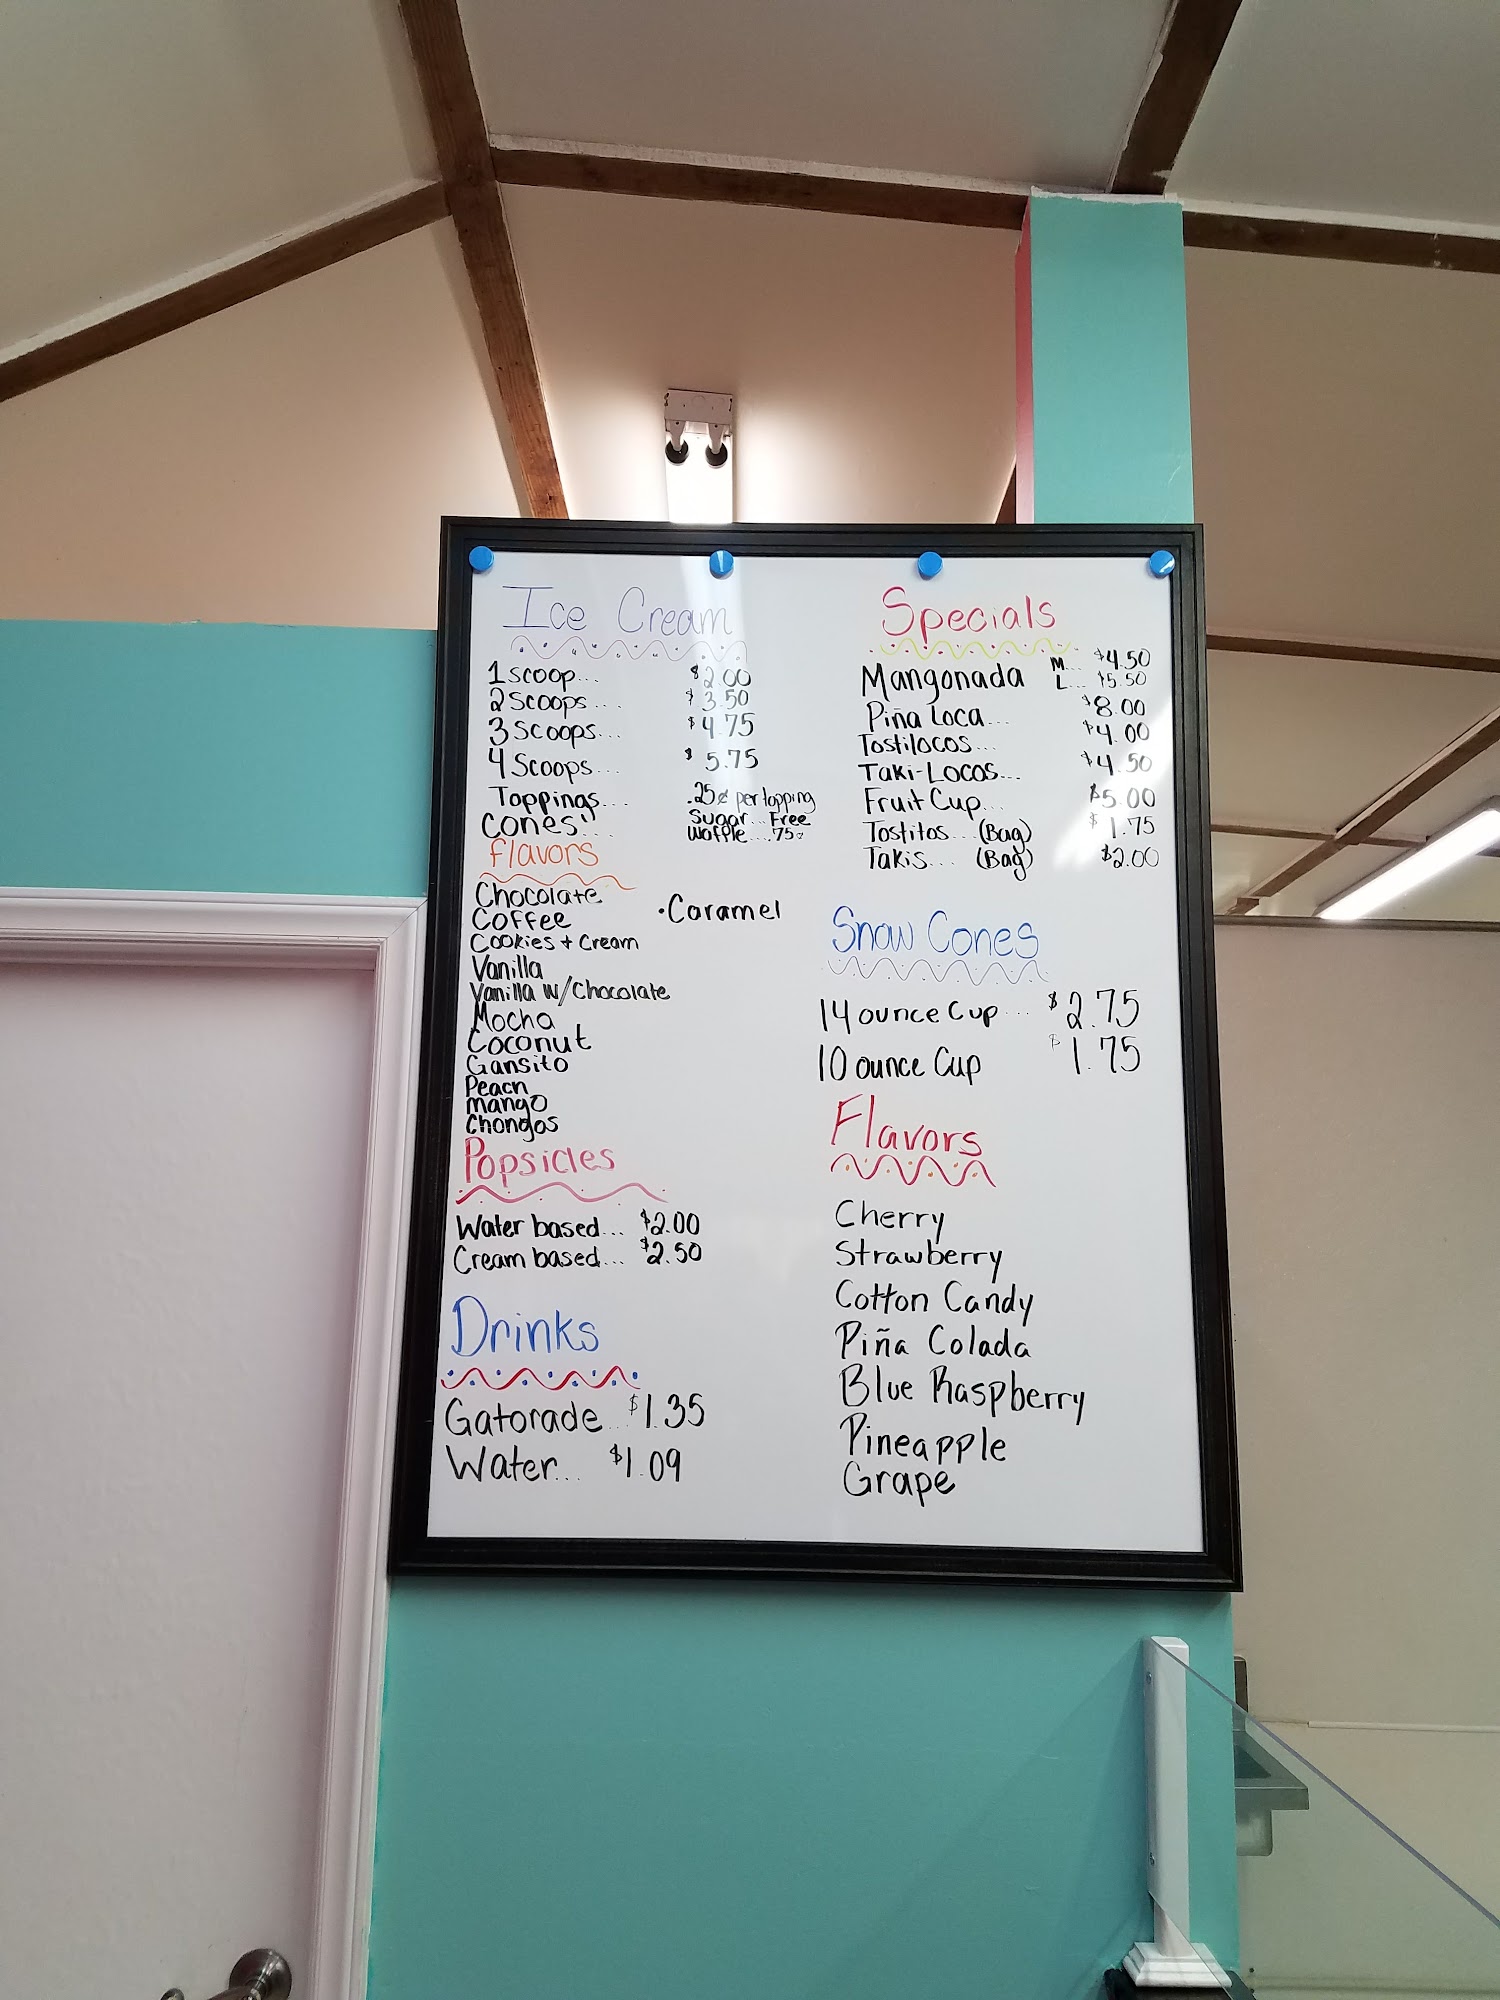 Ice Cream
1 scoop... $2.00
2 Scoops.... $3.50
3 Scoops... $4.75
4 Scoops... $5.75
Toppings... .25¢ per topping
Cones".... Sugar... Free
Waffle....75¢
flavors
Chocolate
Coffee
·Caramel
Cookies + Cream
Vanilla
Vanilla w/Chocolate
Mocha
Coconut
Gansito
Peach
mango
Chongos
Popsicles
Water based... $2.00
Cream based... $2.50
Drinks
Gatorade... $1.35
Water... $1.09
Specials
Mangonada M... $4.50
L... $5.50
Piña Loca... $8.00
Tostilocos... $4.00
Taki-Locos... $4.50
Fruit Cup... $5.00
Tostitos... (Bag) $1.75
Takis... (Bag) $2.00
Snow Cones
14 ounce Cup... $2.75
10 ounce Cup $1.75
Flavors
Cherry
Strawberry
Cotton Candy
Piña Colada
Blue Raspberry
Pineapple
Grape